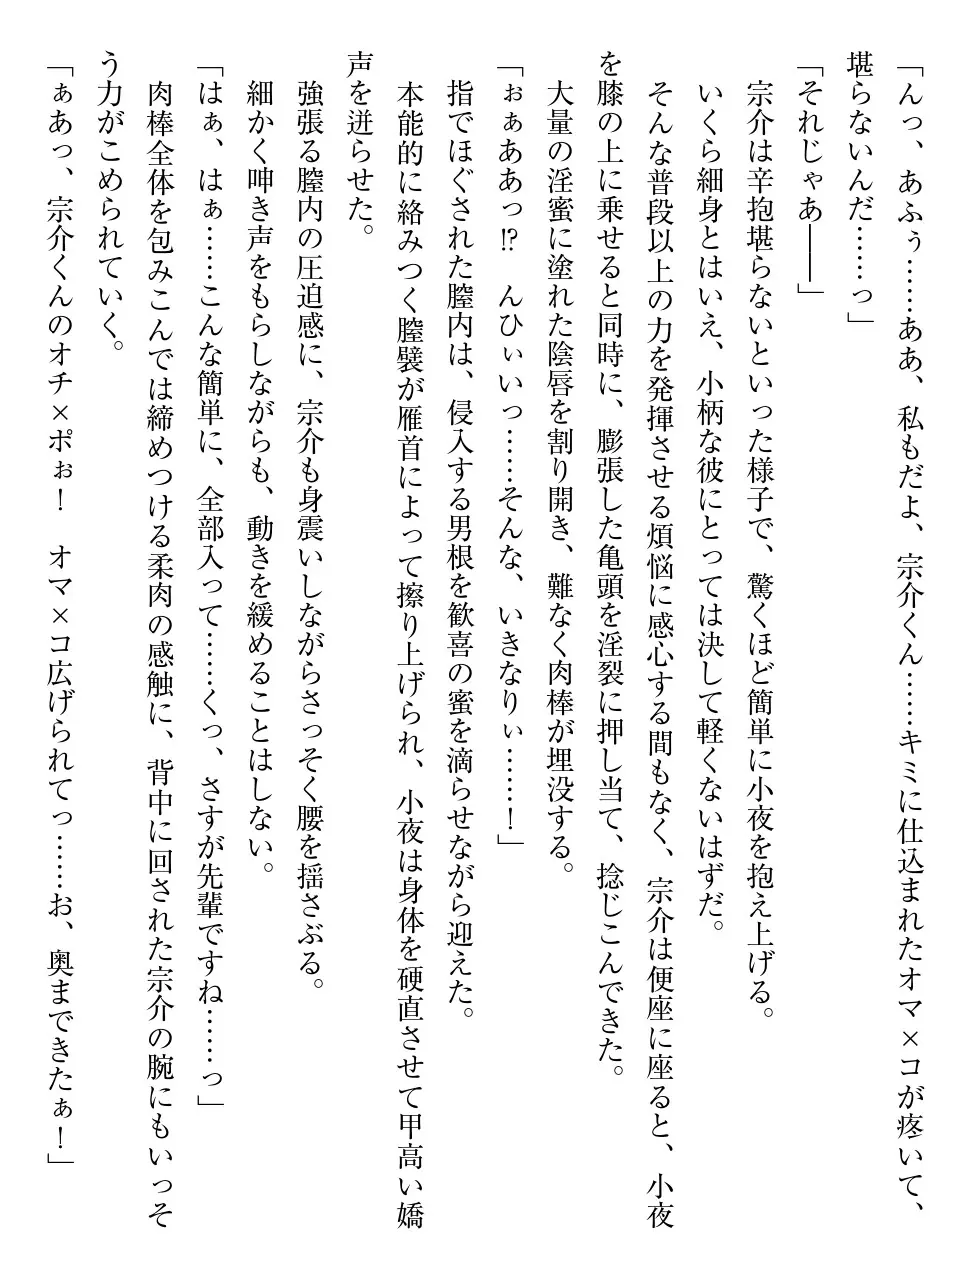 「んっ、あふぅ……ああ、私もだよ、宗介くん……キミに仕込まれたオマ×コが疼いて、
堪らないんだ……っ」
「それじゃあ――」
宗介は辛抱堪らないといった様子で、驚くほど簡単に小夜を抱え上げる。
いくら細身とはいえ、小柄な彼にとっては決して軽くないはずだ。
そんな普段以上の力を発揮させる煩悩に感心する間もなく、宗介は便座に座ると、小夜
を膝の上に乗せると同時に、膨張した亀頭を淫裂に押し当て、捻じこんできた。
大量の淫蜜に塗れた陰唇を割り開き、難なく肉棒が埋没する。
「ぉぁああっ⁉　んひぃいっ……そんな、いきなりぃ……！」
指でほぐされた膣内は、侵入する男根を歓喜の蜜を滴らせながら迎えた。
本能的に絡みつく膣襞が雁首によって擦り上げられ、小夜は身体を硬直させて甲高い嬌
声を迸らせた。
強張る膣内の圧迫感に、宗介も身震いしながらさっそく腰を揺さぶる。
細かく呻き声をもらしながらも、動きを緩めることはしない。
「はぁ、はぁ……こんな簡単に、全部入って……くっ、さすが先輩ですね……っ」
肉棒全体を包みこんでは締めつける柔肉の感触に、背中に回された宗介の腕にもいっそ
う力がこめられていく。
「ぁあっ、宗介くんのオチ×ポぉ！　オマ×コ広げられてっ……お、奥まできたぁ！」